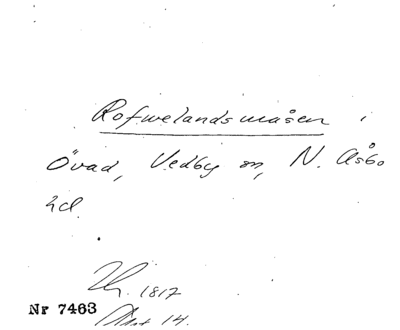 Rofwelandsmåsen i
Övad, Vedby sn, N. Åsbo
hd.
1817
Nr 7463
Akt 14.